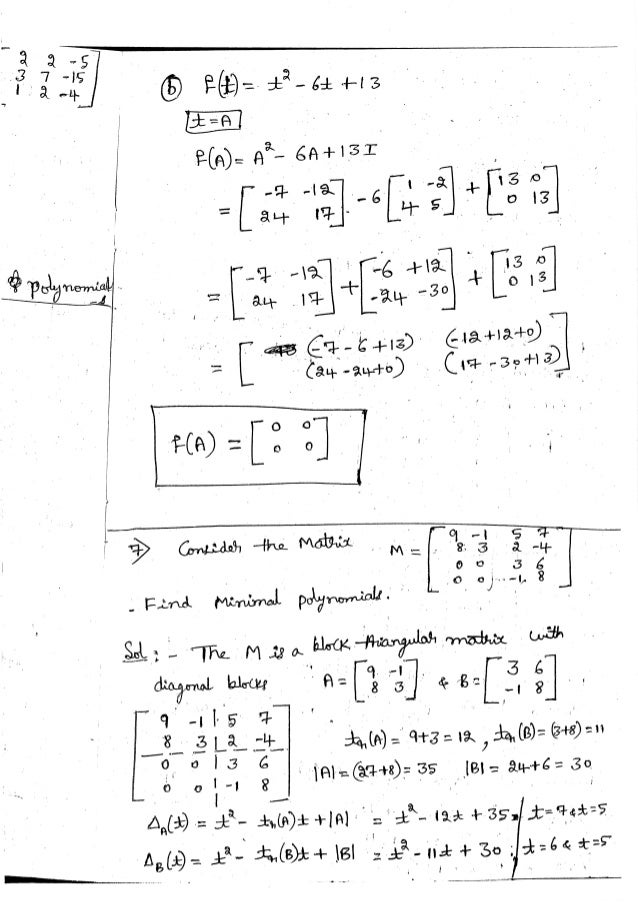 2 2 -5
3 7 -15
1 2 -4
polynomial
(b) f(t) = t² - 6t + 13
t = A
f(A) = A² - 6A + 13I
= [ -7 -12 ; 24 17 ] - 6 [ 1 -2 ; 4 5 ] + [ 13 0 ; 0 13 ]
= [ -7 -12 ; 24 17 ] + [ -6 +12 ; -24 -30 ] + [ 13 0 ; 0 13 ]
= [ (-7-6+13) (-12+12+0) ; (24-24+0) (17-30+13) ]
f(A) = [ 0 0 ; 0 0 ]
7) Consider the Matrix M = [ 9 -1 5 7 ; 8 3 2 -4 ; 0 0 3 6 ; 0 0 -1 8 ]
- Find Minimal polynomials.
Sol :- The M is a block triangular matrix with
diagonal blocks A = [ 9 -1 ; 8 3 ] & B = [ 3 6 ; -1 8 ]
[ 9 -1 | 5 7
8 3 | 2 -4
0 0 | 3 6
0 0 | -1 8 ]
tr(A) = 9+3 = 12 , tr(B) = (3+8) = 11
|A| = (27+8) = 35 |B| = 24+6 = 30
Δ_A(t) = t² - tr(A)t + |A| = t² - 12t + 35 t=7 & t=5
Δ_B(t) = t² - tr(B)t + |B| = t² - 11t + 30 t=6 & t=5